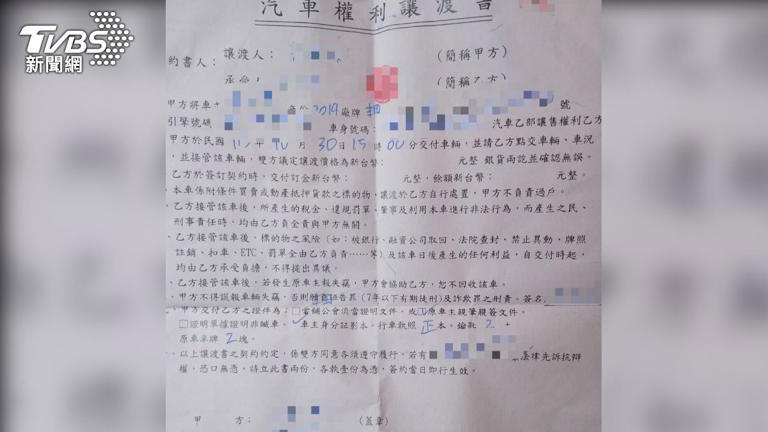 TVBS
新聞網
汽車權利讓渡書
讓渡人：
(簡稱甲方)
約書人：
(簡稱乙方)
甲方將車 2019 廠牌 號
引擎號碼 車身號碼： 汽車乙部讓售權利乙方
甲方於民國 年 10 月 30 日 15 時 00 分交付車輛，並請乙方點交車輛、車況
，並接管該車輛，雙方議定讓渡價格為新台幣： 元整 銀貨兩訖並確認無誤。
乙方於簽訂契約時，交付訂金新台幣： 元整，餘額新台幣： 元整。
本車係附條件買賣或動產抵押貸款之標的物、讓渡於乙方自行處置，甲方不負責過戶。
乙方接管該車後，所產生的稅金、違規罰單、肇事及利用本車進行非法行為，而產生之民、
刑事責任時，均由乙方負全責與甲方無關。
乙方接管該車後，標的物之風險（如：被銀行、融資公司取回、法院查封、禁止異動、牌照
註銷、扣車、ETC、罰單全由乙方負責……等）及該車日後產生的任何利益，自交付時起，
均由乙方承受負擔，不得提出異議。
乙方接管該車後，若發生原車主報失竊，甲方會協助乙方，恕不回收該車。
甲方不得謊報車輛失竊，否則願負誣告罪（7年以下有期徒刑）及詐欺罪之刑責。簽名：
甲方交付乙方之證件為：□當鋪公會流當證明文件。或 原車主親筆親簽文件。
□證明單據證明非贓車。 車主身分証影本。行車執照 正 本。鑰匙 2
原車車牌 2 塊。
以上讓渡書之契約約定，係雙方同意各須遵守履行，若有 棄律先訴抗辯
權，恐口無憑，請立此書兩份，各執壹份為憑，簽約當日即行生效。
甲 方： （蓋章）